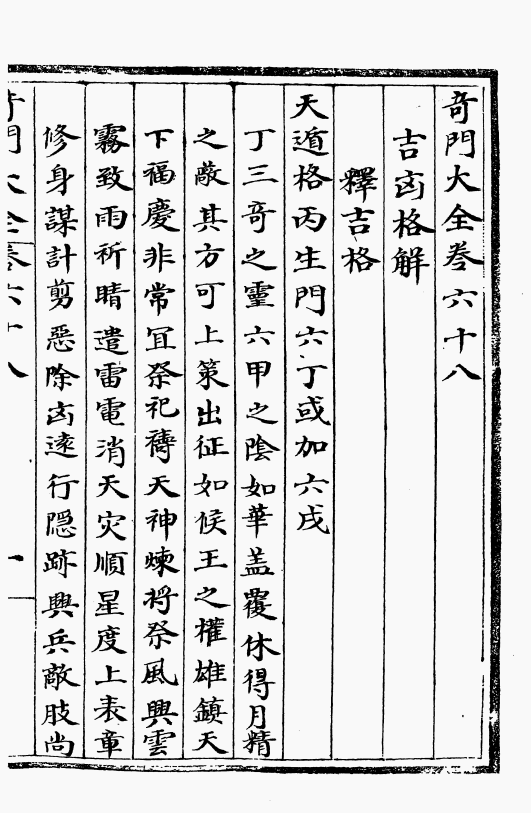 奇門大全卷六十八
吉凶格解
釋吉格
天遁格丙生門六丁或加六戌
丁三奇之靈六甲之陰如華盖覆休得月精
之敵其方可上策出征如候王之權雄鎮天
下福慶非常宜祭祀禱天神煉將祭風興雲
霧致雨祈晴遣雷電消天灾順星度上表章
修身謀計剪惡除凶遠行隱跡興兵敵肢尚
奇門大全卷六十八
一